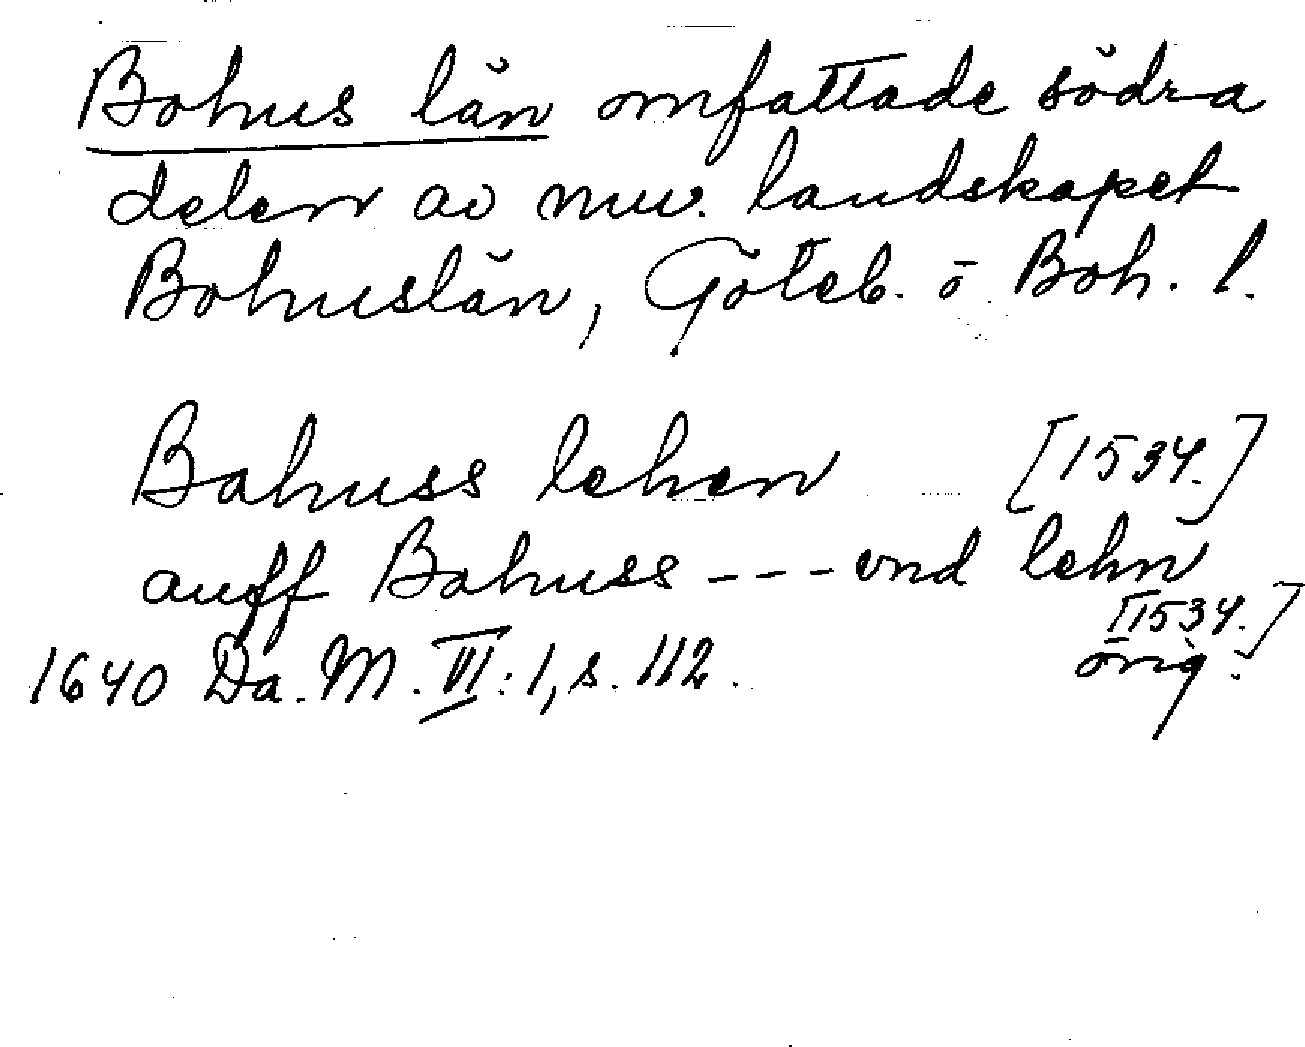 Bohus län omfattade södra
delen av nuv. landskapet
Bohuslän, Göteb. o. Boh. l.
Bahuss lehen [1534.]
auff Bahuss --- vnd lehn
[1534.]
1640 Da. M. VI: 1, s. 112. orig.